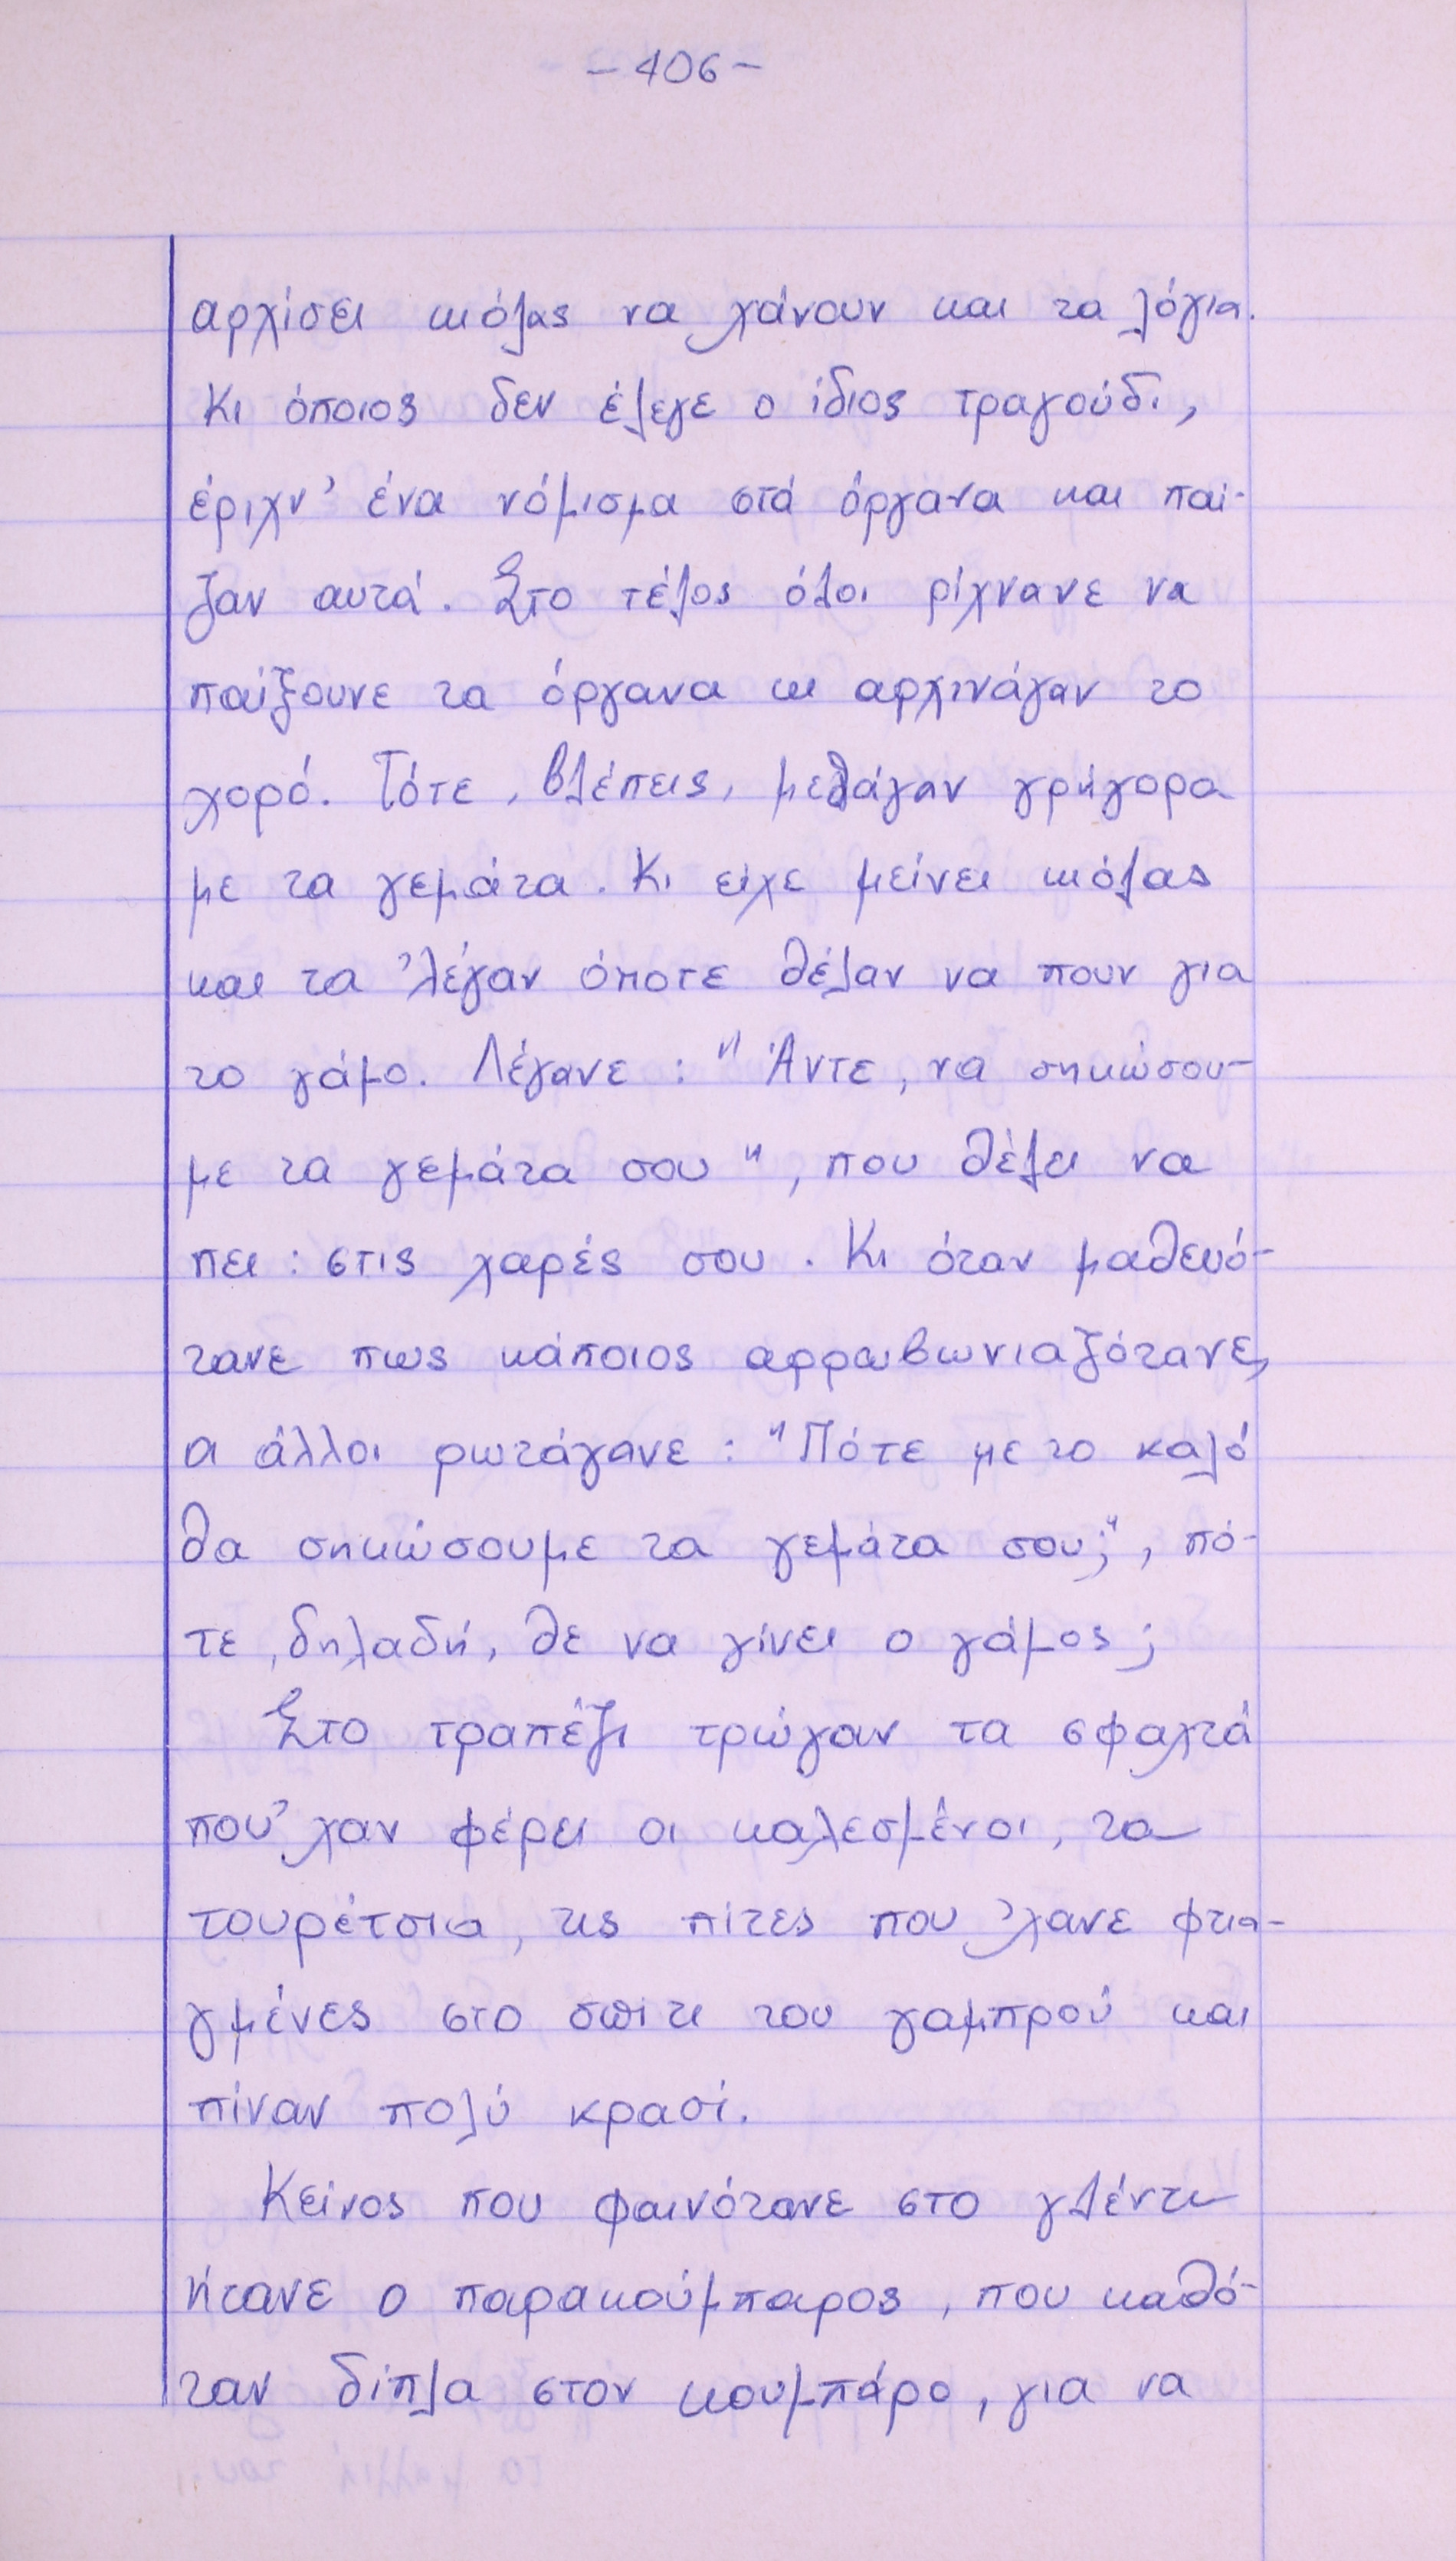 - 406 -
αρχίσει κιόλας να χάνουν και τα λόγια.
Κι όποιος δεν έλεγε ο ίδιος τραγούδι,
έριχν' ένα νόμισμα στά όργανα και παί-
ζαν αυτά. Στο τέλος όλοι ρίχνανε να
παίξουνε τα όργανα κι αρχινάγαν το
χορό. Τότε, βλέπεις, μεθάγαν γρήγορα
με τα γεμάτα. Κι είχε μείνει κιόλας
και τα 'λέγαν όποτε θέλαν να πουν για
το γάμο. Λέγανε: "Άντε, να σηκώσου-
με τα γεμάτα σου", που θέλει να
πει: στις χαρές σου. Κι όταν μαθευό-
τανε πως κάποιος αρραβωνιαζότανε,
οι άλλοι ρωτάγανε: "Πότε με το καλό
θα σηκώσουμε τα γεμάτα σου;", πό-
τε, δηλαδή, θε να γίνει ο γάμος;
Στο τραπέζι τρώγαν τα σφαχτά
που 'χαν φέρει οι καλεσμένοι, τα
τουρέτσια, τις πίτες που 'χανε φτια-
γμένες στο σπίτι του γαμπρού και
πίναν πολύ κρασί.
Κείνος που φαινότανε στο γλέντι
ήτανε ο παρακούμπαρος, που καθό-
ταν δίπλα στον κουμπάρο, για να